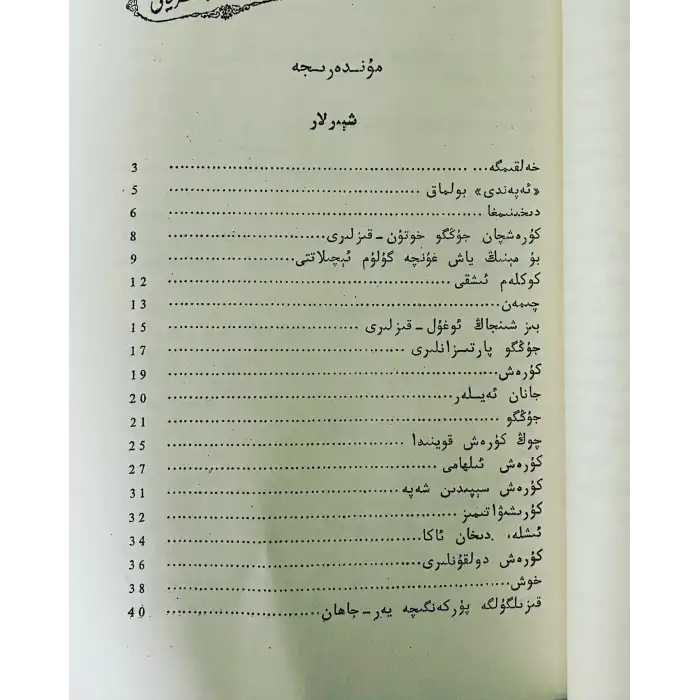 مۇندەرىجە
شېئرلار
خەلقىمگە... ........ 3
«ئەپەندى» بولماق ........ 5
دىخىنىمغا ........ 6
كۈرەشچان جۇڭگو خوتۇن-قىزلىرى ........ 8
بۇ مېنىڭ ياش غۇنچە گۈلۈم ئېچىلاتتى ........ 9
كۆكلەم ئىشقى ........ 12
چىمەن ........ 13
بىز شىنجاڭ ئوغۇل-قىزلىرى ........ 15
جۇڭگو پارتىزانلىرى ........ 17
كۈرەش ........ 19
جانان ئەيىلەر ........ 20
جۇڭگو ........ 21
چوڭ كۈرەش قوينىدا ........ 25
كۈرەش ئىلھامى ........ 27
كۈرەش سېپىدىن شەپە ........ 31
كۆرىشىۋاتىمىز ........ 32
ئىشلە، دىخان ئاكا ........ 34
كۈرەش دولقۇنلىرى ........ 36
خوش ........ 38
قىزىلگۈلگە پۈركەنگىچە يەر-جاھان ........ 40